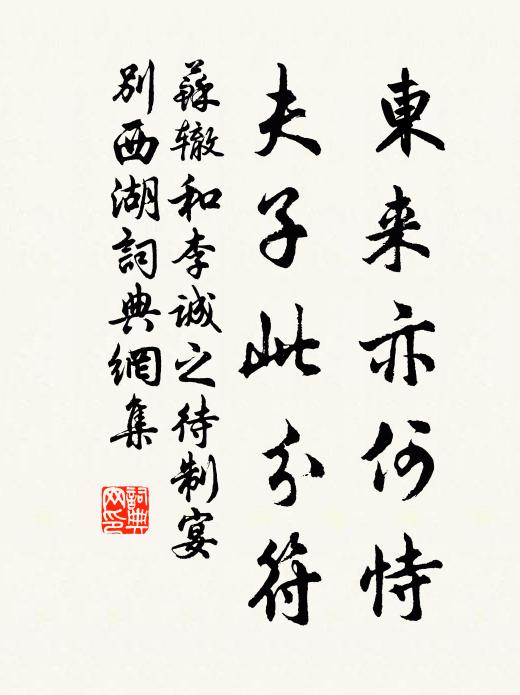 東来亦何恃
夫子此分符
蘇辙和李诚之待制宴
别西湖詞典網集
詞典
网印